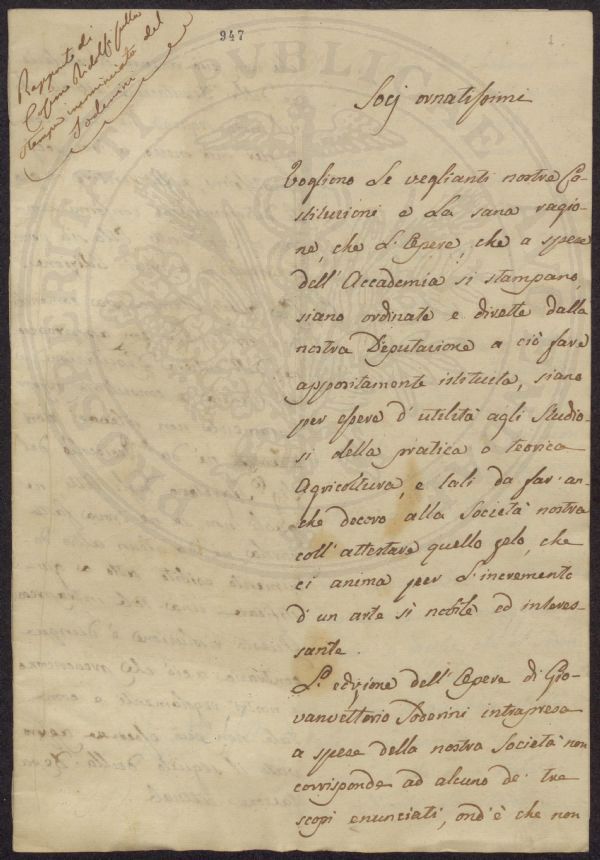 947
1
Rapporto di
Cosimo Ridolfi sulla
stampa incominciata del
Soderini
Socj ornatissimi
Vogliono Le veglianti nostre Co-
stituzioni e La sana ragio-
ne, che L'Opere, che a spese
dell'Accademia si stampano,
siano ordinate e dirette dalla
nostra Deputazione a ciò fare
appositamente istituita, siano
per essere d'utilità agli Studio-
si della pratica o teorica
Agricoltura, e tali da far an-
che decoro alla Società nostra
coll'attestare quello zelo, che
ci anima per L'incremento
d'un arte sì nobile ed interes-
sante.
L'edizione dell'Opere di Gio-
vanvettorio Soderini intrapresa
a spese della nostra Società non
corrisponde ad alcuno de' tre
scopi enunciati, ond'è che non
PRO REI PUBLICAE